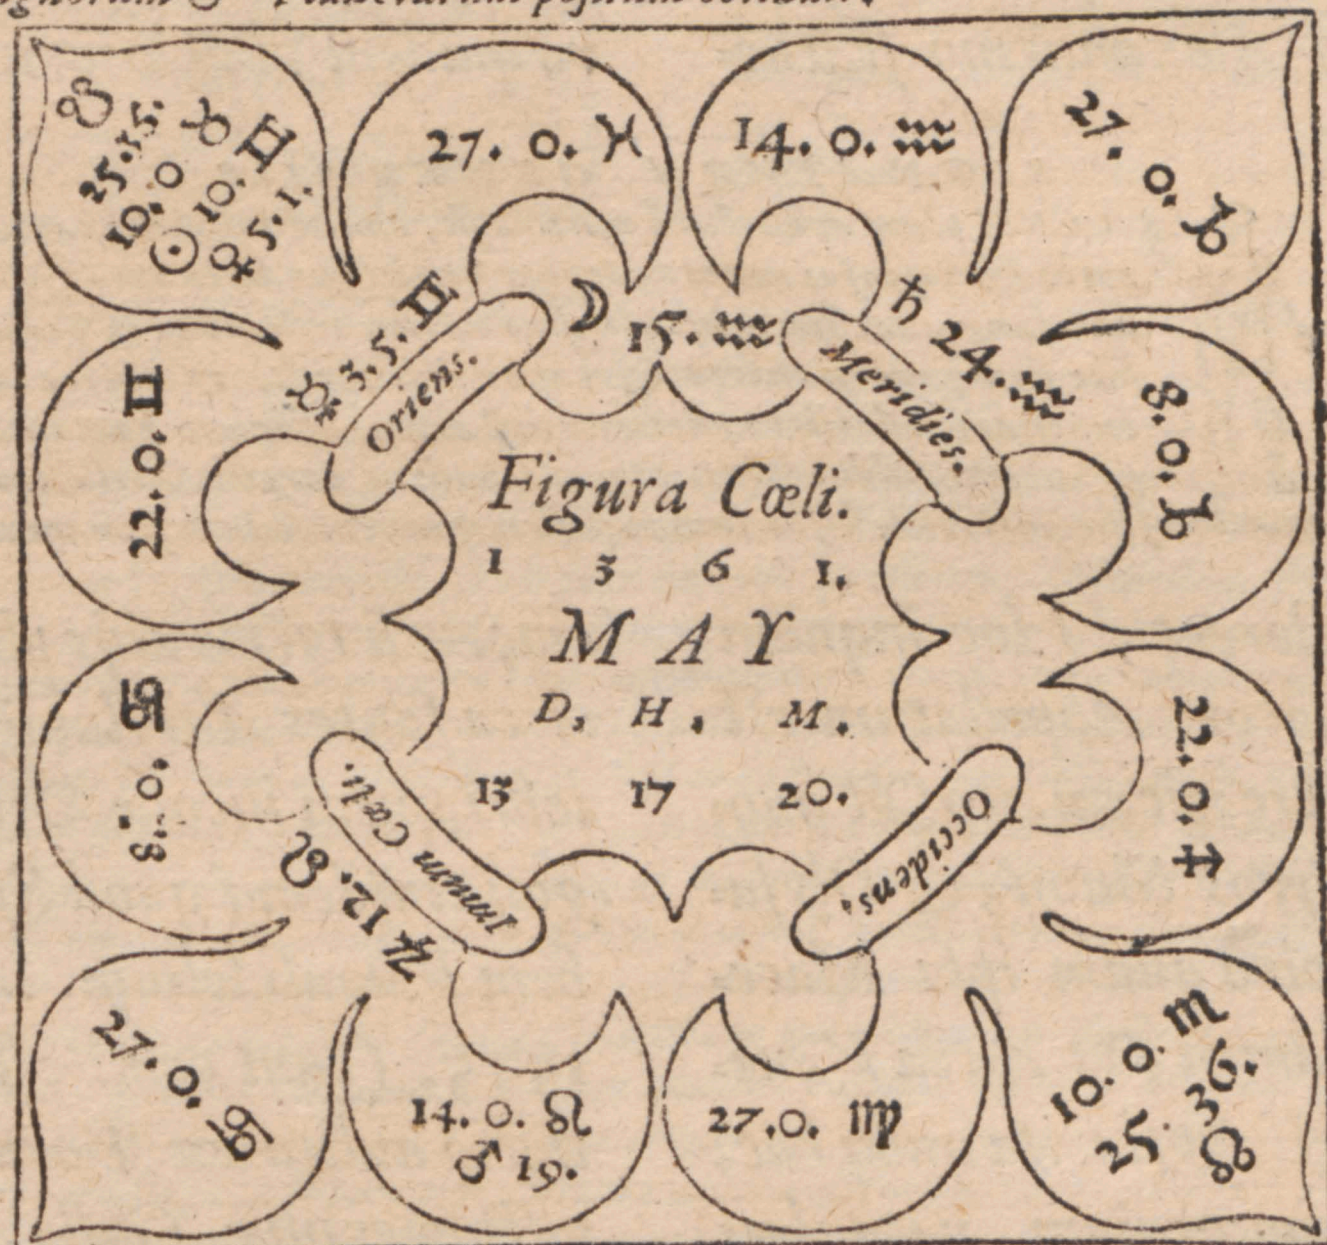 ☋
25.35.
10. 0 ♉
☉ 10. ♊
♀ 5. 1.
27. 0. ♓
14. 0. ♒
27. 0. ♑
☿ 3. 5. ♊
Oriens.
☽ 15. ♒
Meridies.
♄ 24. ♒
22. 0. ♊
8. 0. ♑
Figura Cœli.
1 3 6 1.
M A Y
D, H. M.
13 17 20.
8. 0. ♋
22. 0. ♐
Imum Cœli.
♃ 12. ♌
Occidens,
27. 0. ♋
14. 0. ♌
♂ 19.
27. 0. ♍
10. 0. ♏
25. 36.
☊